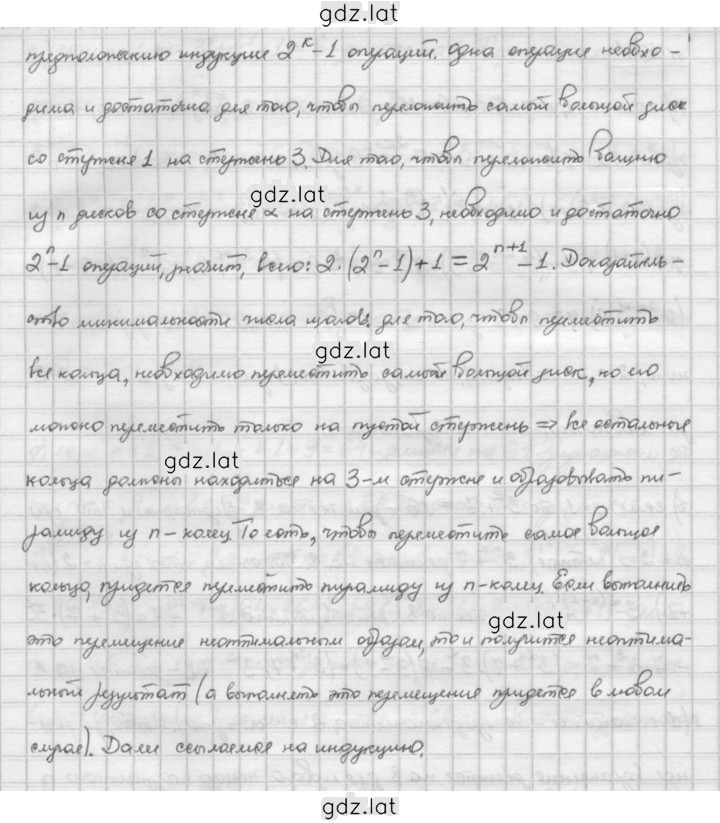 gdz.lat
предположению индукции 2^k-1 операций. Одна операция необхо-
дима и достаточна для того, чтобы переложить самый большой диск
со стержня 1 на стержень 3. Для того, чтобы переложить башню
gdz.lat
из n дисков со стержня 2 на стержень 3, необходимо и достаточно
2^n-1 операций, значит, всего: 2·(2^n-1)+1=2^{n+1}-1. Доказатель-
ство минимальности числа шагов: для того, чтобы переместить
gdz.lat
все кольца, необходимо переместить самый большой диск, но его
можно переместить только на пустой стержень ⇒ все остальные
gdz.lat
кольца должны находиться на 3-м стержне и образовывать пи-
рамиду из n-колец. То есть, чтобы переместить самое большое
кольцо, придется переместить пирамиду из n-колец. Если выполнить
gdz.lat
это перемещение неоптимальным образом, то и получится неоптима-
льный результат (а выполнять это перемещение придется в любом
случае). Далее ссылаемся на индукцию.
gdz.lat